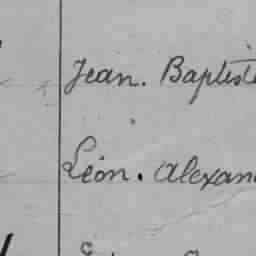 Jean. Baptiste
Léon. Alexan